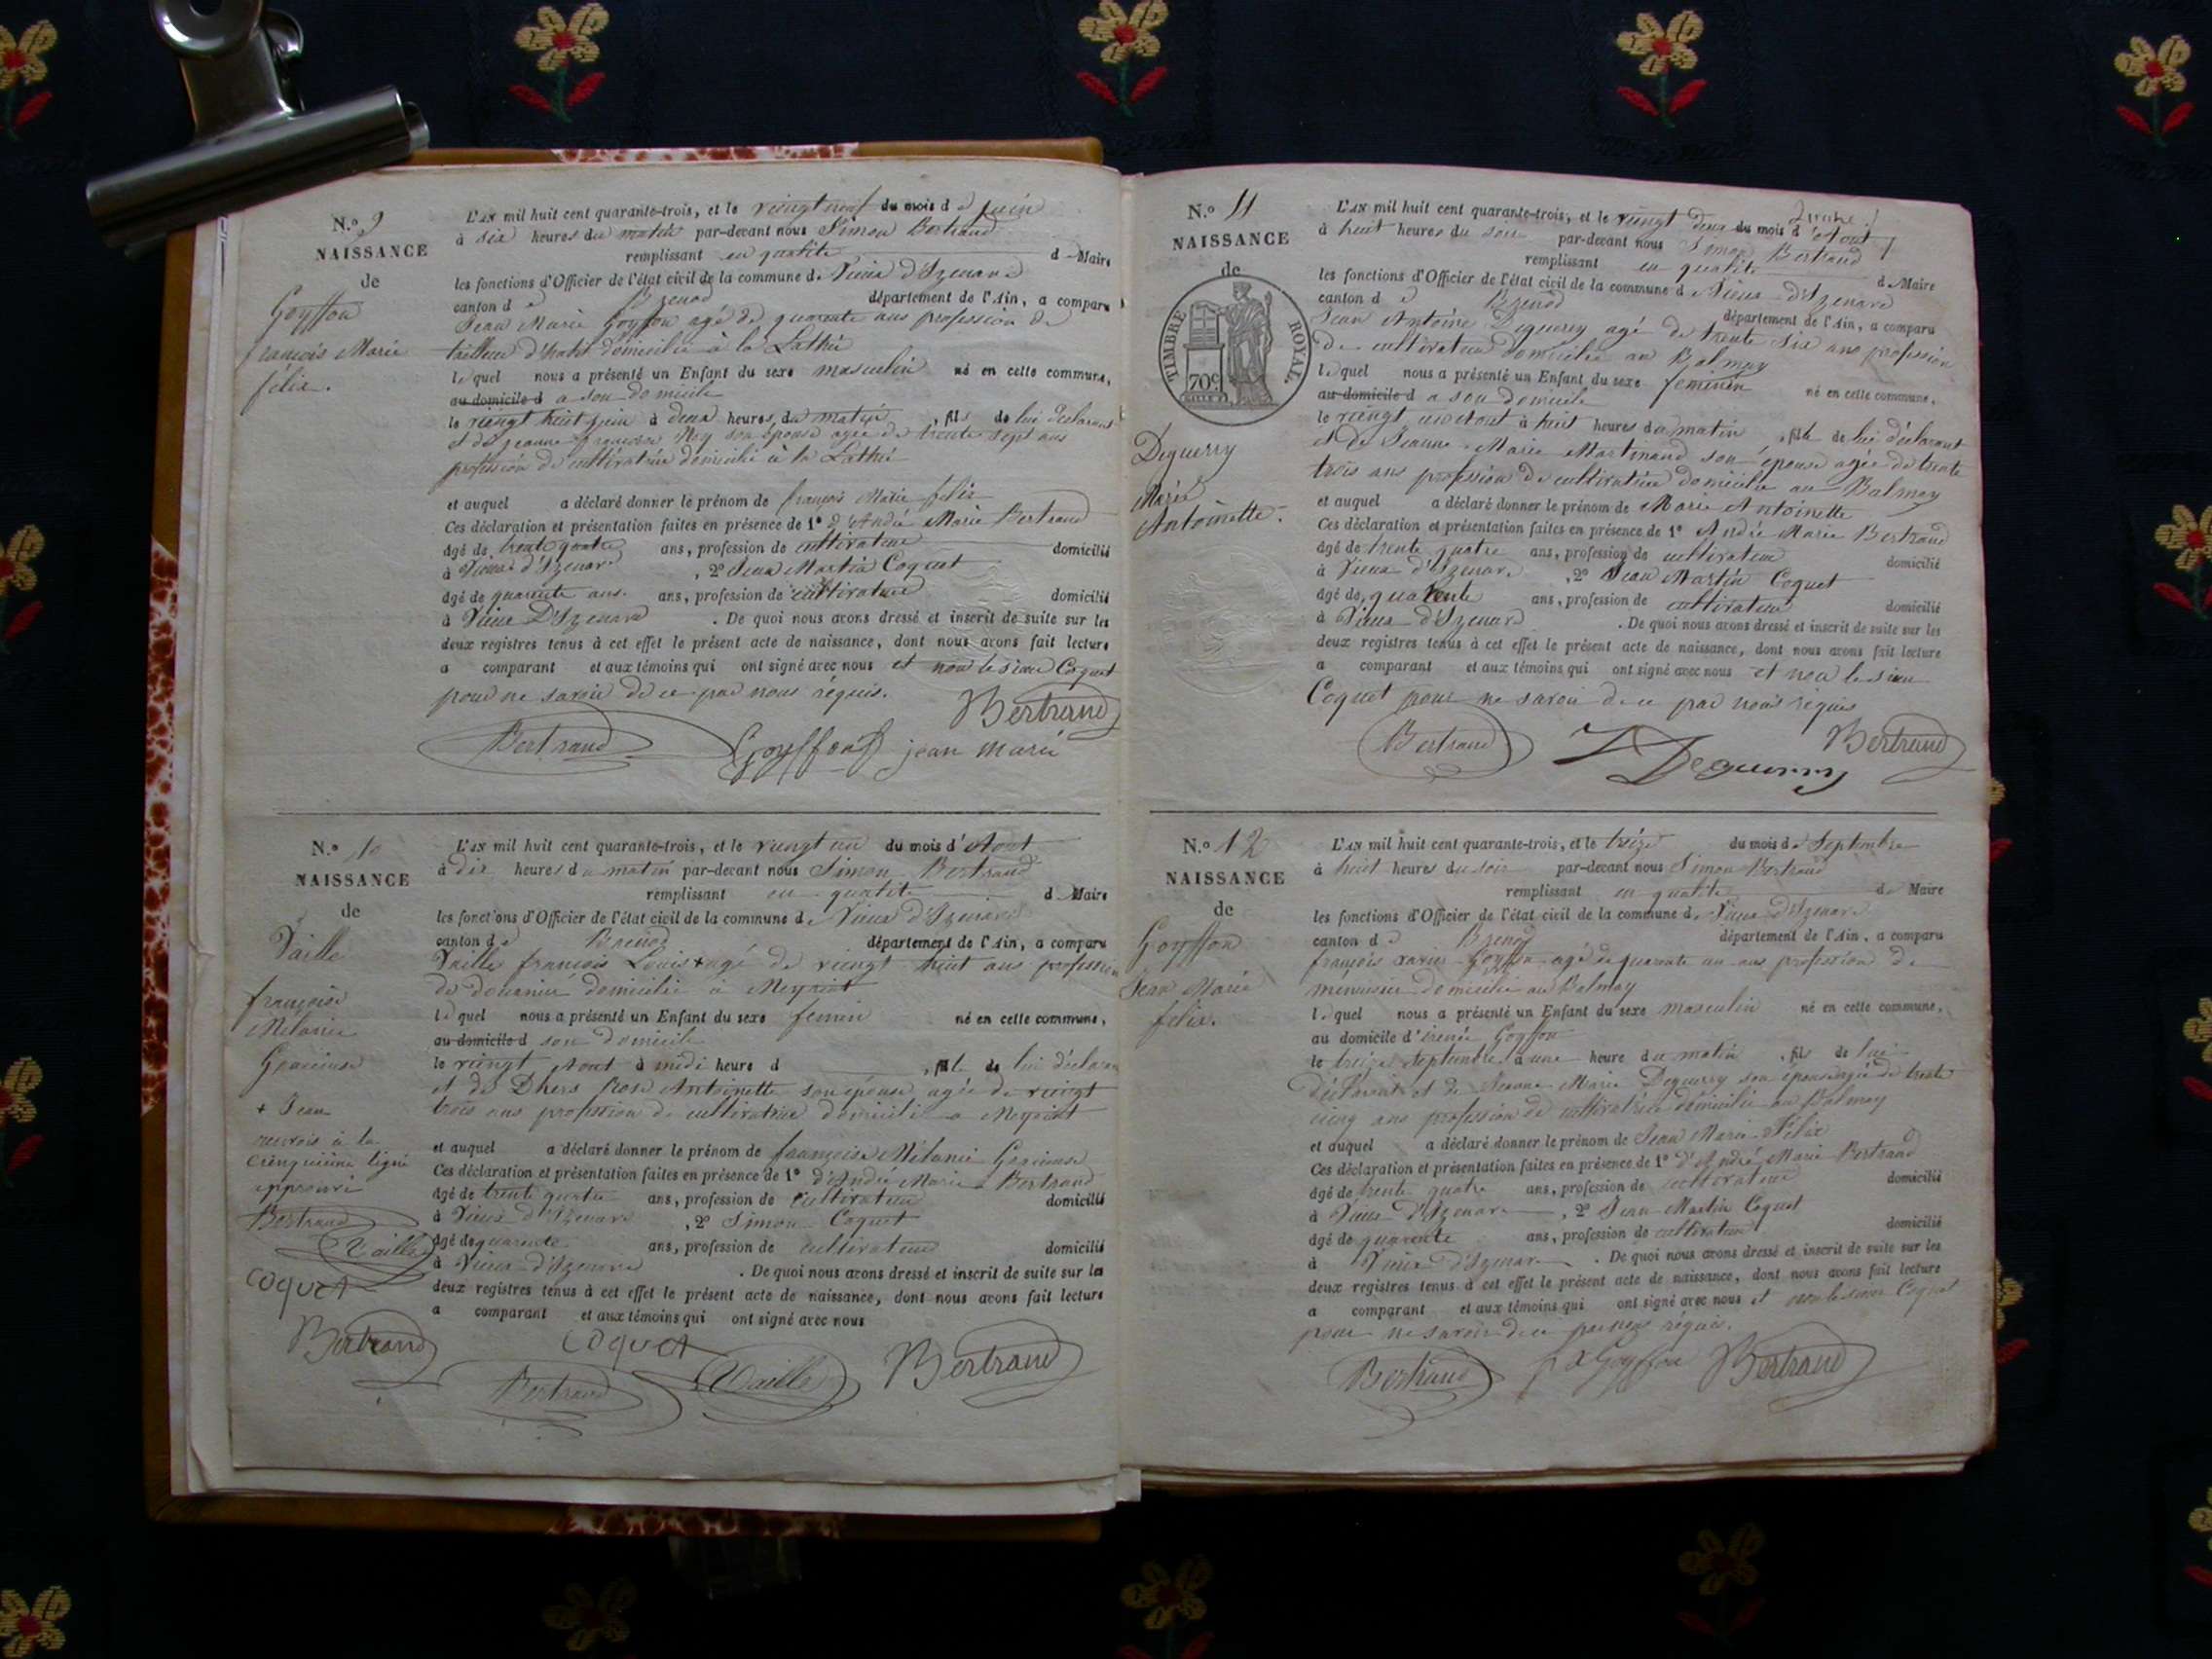 N.º 9
NAISSANCE
de
Goyffon
françois Marie
félix.
L'AN mil huit cent quarante-trois, et le vingt neuf du mois d e juin
à six heures du matin par-devant nous Simon Bertrand
remplissant en qualité d Maire
les fonctions d'Officier de l'état civil de la commune d. Vieux d'Izenave
canton d e Brenod département de l'Ain, a comparu
Jean Marie Goyffon agé de quarante ans profession de
tailleur d'habit domicilié à la
lequel nous a présenté un Enfant du sexe masculin né en cette commune,
au domicile d a son domicile
le vingt huit juin à deux heures du matin , fils de lui déclarant
et de jeanne françoise Ney son épouse agée de trente sept ans
profession de cultivatrice domicilié à la
et auquel a déclaré donner le prénom de françois Marie félix
Ces déclaration et présentation faites en présence de 1º d'André Marie Bertrand
âgé de trente quatre ans, profession de cultivateur domicilié
à Vieux d'Izenave , 2º Jean Martin Coquet
âgé de quarante ans. ans, profession de cultivateur domicilié
à Vieux D'Izenave . De quoi nous avons dressé et inscrit de suite sur les
deux registres tenus à cet effet le présent acte de naissance, dont nous avons fait lecture
a comparant et aux témoins qui ont signé avec nous et non le sieur Coquet
pour ne savoir de ce par nous réquis.
Bertrand
Bertrand Goyffon jean marie
N.º 10
NAISSANCE
de
Vaille
françoise
Mélanie
Gracieuse
+ Jean
renvois à la
cinquième ligne
approuvé
Bertrand
Vaille
Coquet
Bertrand
L'AN mil huit cent quarante-trois, et le vingt un du mois d'Aout
à dix heures du matin par-devant nous Simon Bertrand
remplissant en qualité d Maire
les fonctions d'Officier de l'état civil de la commune d. Vieux d'Izenave
canton d e Brenod département de l'Ain, a comparu
Vaille françois Louis + agé de vingt huit ans profession
de douanier domicilié à Meyriat
lequel nous a présenté un Enfant du sexe feminin né en cette commune,
au domicile d son domicile
le vingt Aout à midi heure d , fille de lui déclarant
et de Dhers Rose Antoinette son épouse agée de vingt
trois ans profession de cultivatrice domicilié à Meyriat
et auquel a déclaré donner le prénom de françoise Mélanie Gracieuse
Ces déclaration et présentation faites en présence de 1º d'André Marie Bertrand
âgé de trente quatre ans, profession de cultivateur domicilié
à Vieux d'Izenave , 2º Simon Coquet
âgé de quarante ans, profession de cultivateur domicilié
à Vieux d'Izenave . De quoi nous avons dressé et inscrit de suite sur les
deux registres tenus à cet effet le présent acte de naissance, dont nous avons fait lecture
a comparant et aux témoins qui ont signé avec nous
Coquet
Bertrand Vaille Bertrand
N.º 11
NAISSANCE
de
TIMBRE ROYAL.
70c
Deguerry
Marie
Antoinette.
L'AN mil huit cent quarante-trois, et le vingt deux du mois d'Aout
à huit heures du soir par-devant nous Simon Bertrand
remplissant en qualité d Maire
les fonctions d'Officier de l'état civil de la commune d Vieux d'Izenave
canton d e Brenod département de l'Ain, a comparu
Jean Antoine Deguerry agé de trente six ans profession
de cultivateur domicilié au Balmay
lequel nous a présenté un Enfant du sexe feminin né en cette commune,
au domicile d a son domicile
le vingt un Aout à huit heures du matin , fille de lui déclarant
et de Jeanne Marie Martinand son épouse agée de trente
trois ans profession de cultivatrice domicilié au Balmay
et auquel a déclaré donner le prénom de Marie Antoinette
Ces déclaration et présentation faites en présence de 1º André Marie Bertrand
âgé de trente quatre ans, profession de cultivateur domicilié
à Vieux d'Izenave , 2º Jean Martin Coquet
âgé de quarante ans, profession de cultivateur domicilié
à Vieux d'Izenave . De quoi nous avons dressé et inscrit de suite sur les
deux registres tenus à cet effet le présent acte de naissance, dont nous avons fait lecture
a comparant et aux témoins qui ont signé avec nous et non le sieur
Coquet pour ne savoir de ce par nous réquis
Bertrand Deguerry Bertrand
N.º 12
NAISSANCE
de
Goyffon
Jean Marie
félix.
L'AN mil huit cent quarante-trois, et le treize du mois d e Septembre
à huit heures du soir par-devant nous Simon Bertrand
remplissant en qualité de Maire
les fonctions d'Officier de l'état civil de la commune d. Vieux d'Izenave
canton d e Brenod département de l'Ain, a comparu
françois xavier Goyffon agé de quarante un ans profession de
menuisier domicilié au Balmay
lequel nous a présenté un Enfant du sexe masculin né en cette commune,
au domicile d'irénée Goyffon
le treize septembre à une heure du matin , fils de lui
déclarant et de Jeanne Marie Deguerry son épouse agée de trente
cinq ans profession de cultivatrice domicilié au Balmay
et auquel a déclaré donner le prénom de Jean Marie Félix
Ces déclaration et présentation faites en présence de 1º d'André Marie Bertrand
âgé de trente quatre ans, profession de cultivateur domicilié
à Vieux d'Izenave , 2º Jean Martin Coquet
âgé de quarante ans, profession de cultivateur domicilié
à Vieux d'Izenave . De quoi nous avons dressé et inscrit de suite sur les
deux registres tenus à cet effet le présent acte de naissance, dont nous avons fait lecture
a comparant et aux témoins qui ont signé avec nous et non le sieur Coquet
pour ne savoir de ce par nous réquis.
Bertrand f x Goyffon Bertrand